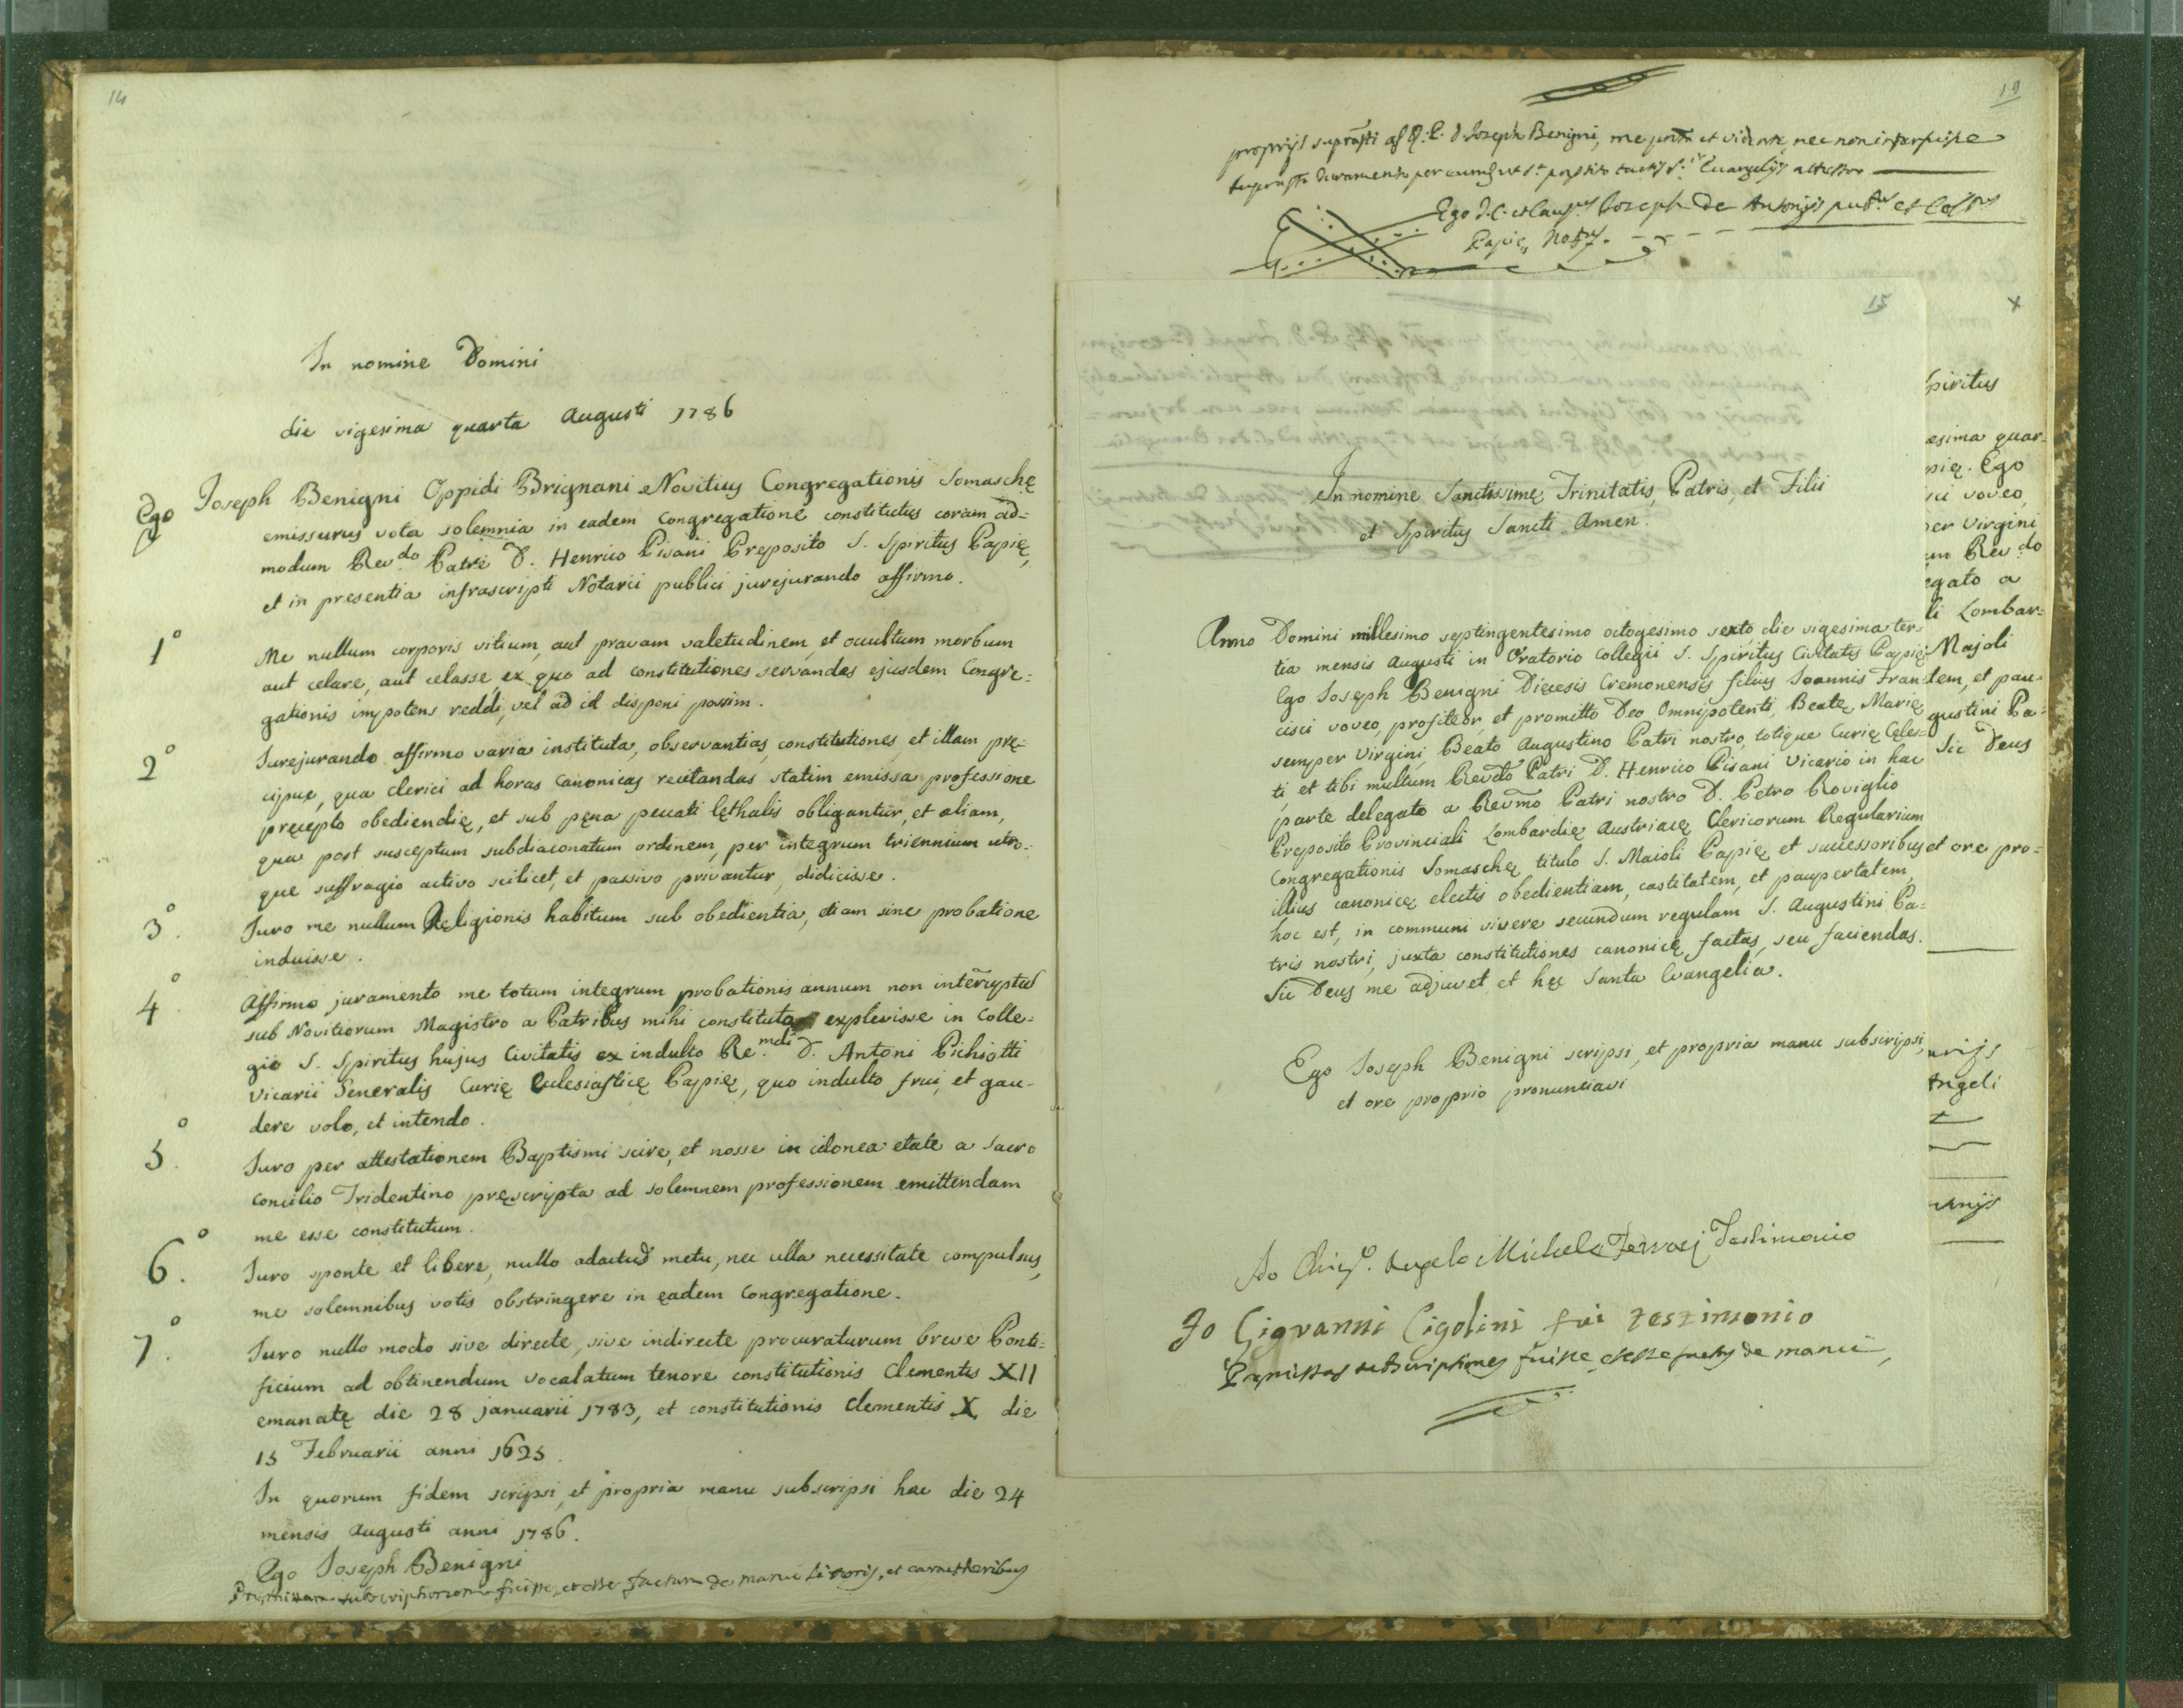 14
In nomine Domini
die vigesima quarta Augusti 1786
Ego Joseph Benigni Oppidi Brignani Novitius Congregationis Somaschę
emissurus vota solemnia in eadem Congregatione constitutus coram ad=
modum Rev.do Patre D. Henrico Pisani Preposito S. Spiritus Papię,
et in presentia infrascripti Notarii publici jurejurando affirmo.
1° Me nullum corporis vitium, aut pravam valetudinem, et occultum morbum
aut celare, aut celasse, ex quo ad constitutiones servandas ejusdem Congre=
gationis impotens reddi, vel ad id disponi possim.
2° Jurejurando affirmo varia instituta, observantias, constitutiones, et illam prę=
cipue, qua clerici ad horas canonicas recitandas, statim emissa professione
pręcepto obediendię, et sub pęna peccati lęthalis obligantur, et aliam,
qua post susceptum subdiaconatum ordinem, per integrum triennium utro=
que suffragio activo scilicet, et passivo privantur, didicisse.
3°. Juro me nullum Religionis habitum sub obedientia, etiam sine probatione
induisse.
4°. Affirmo juramento me totum integrum probationis annum non interruptus
sub Novitiorum Magistro a Patribus mihi constituto explevisse in Colle=
gio S. Spiritus hujus Civitatis ex indulto Re.mdi D. Antoni Pichiotti
Vicarii Generalis Curię Eclesiasticę Papię, quo indulto frui, et gau=
dere volo, et intendo.
5°. Juro per attestationem Baptismi scire, et nosse in idonea etate a Sacro
Concilio Tridentino pręscripta ad solemnem professionem emittendam
me esse constitutum.
6°. Juro sponte et libere, nullo adactus metu, nec ulla necessitate compulsus,
me solemnibus votis obstringere in eadem Congregatione.
7°. Juro nullo modo sive directe, sive indirecte procuraturum breve Ponti=
ficium ad obtinendum vocalatum tenore constitutionis Clementis XII
emanatę die 28 januarii 1783, et constitutionis Clementis X die
15 Februarii anni 1625.
In quorum fidem scripsi, et propria manu subscripsi hac die 24
mensis Augusti anni 1786.
Ego Joseph Benigni
subscriptionem fuisse, et esse factam de manu et caractheribus
19
proprijs Joseph Benigni, me et vidente, nec non
Evangelijs attestor
Ego Joseph De Antonijs
Papię
15
x
In nomine Sanctissimę Trinitatis, Patris, et Filii
et Spiritus Sancti Amen.
Anno Domini millesimo septingentesimo octogesimo sexto, die vigesima ter=
tia mensis Augusti in Oratorio Collegii S. Spiritus Civitatis Papię
Ego Joseph Benigni Diecesis Cremonensis filius Joannis Fran
cisci voveo, profiteor, et promitto Deo Omnipotenti, Beatę Marię
semper Virgini, Beato Augustino Patri nostro, totique Curię Cęles=
ti, et tibi multum Revdo Patri D. Henrico Pisani Vicario in hac
parte delegato a Revmo Patri nostro D. Petro Roviglio
Preposito Provinciali Lombardię Austriacę Clericorum Regularium
Congregationis Somaschę titulo S. Maioli Papię et successoribus
illius canonicę electis obedientiam, castitatem, et paupertatem,
hoc est, in communi vivere secundum regulam S. Augustini Pa=
tris nostri, juxta constitutiones canonicę factas, seu faciendas.
Sic Deus me adjuvet, et hęc Santa Evangelia.
Ego Joseph Benigni scripsi, et propria manu subscripsi,
et ore proprio pronunciavi
Angelo Michele Ferrari Testimonio
Jo Giovanni Cigolini fui testimonio
subscriptiones fuisse, et esse factas de manu,
piritus
esima quar=
pię. Ego
sci voveo,
per Virgini
um Rev.do
egato a
li Lombar=
Majoli
tem, et pau=
gustini Pa=
Sic Deus
et ore pro=
Angeli